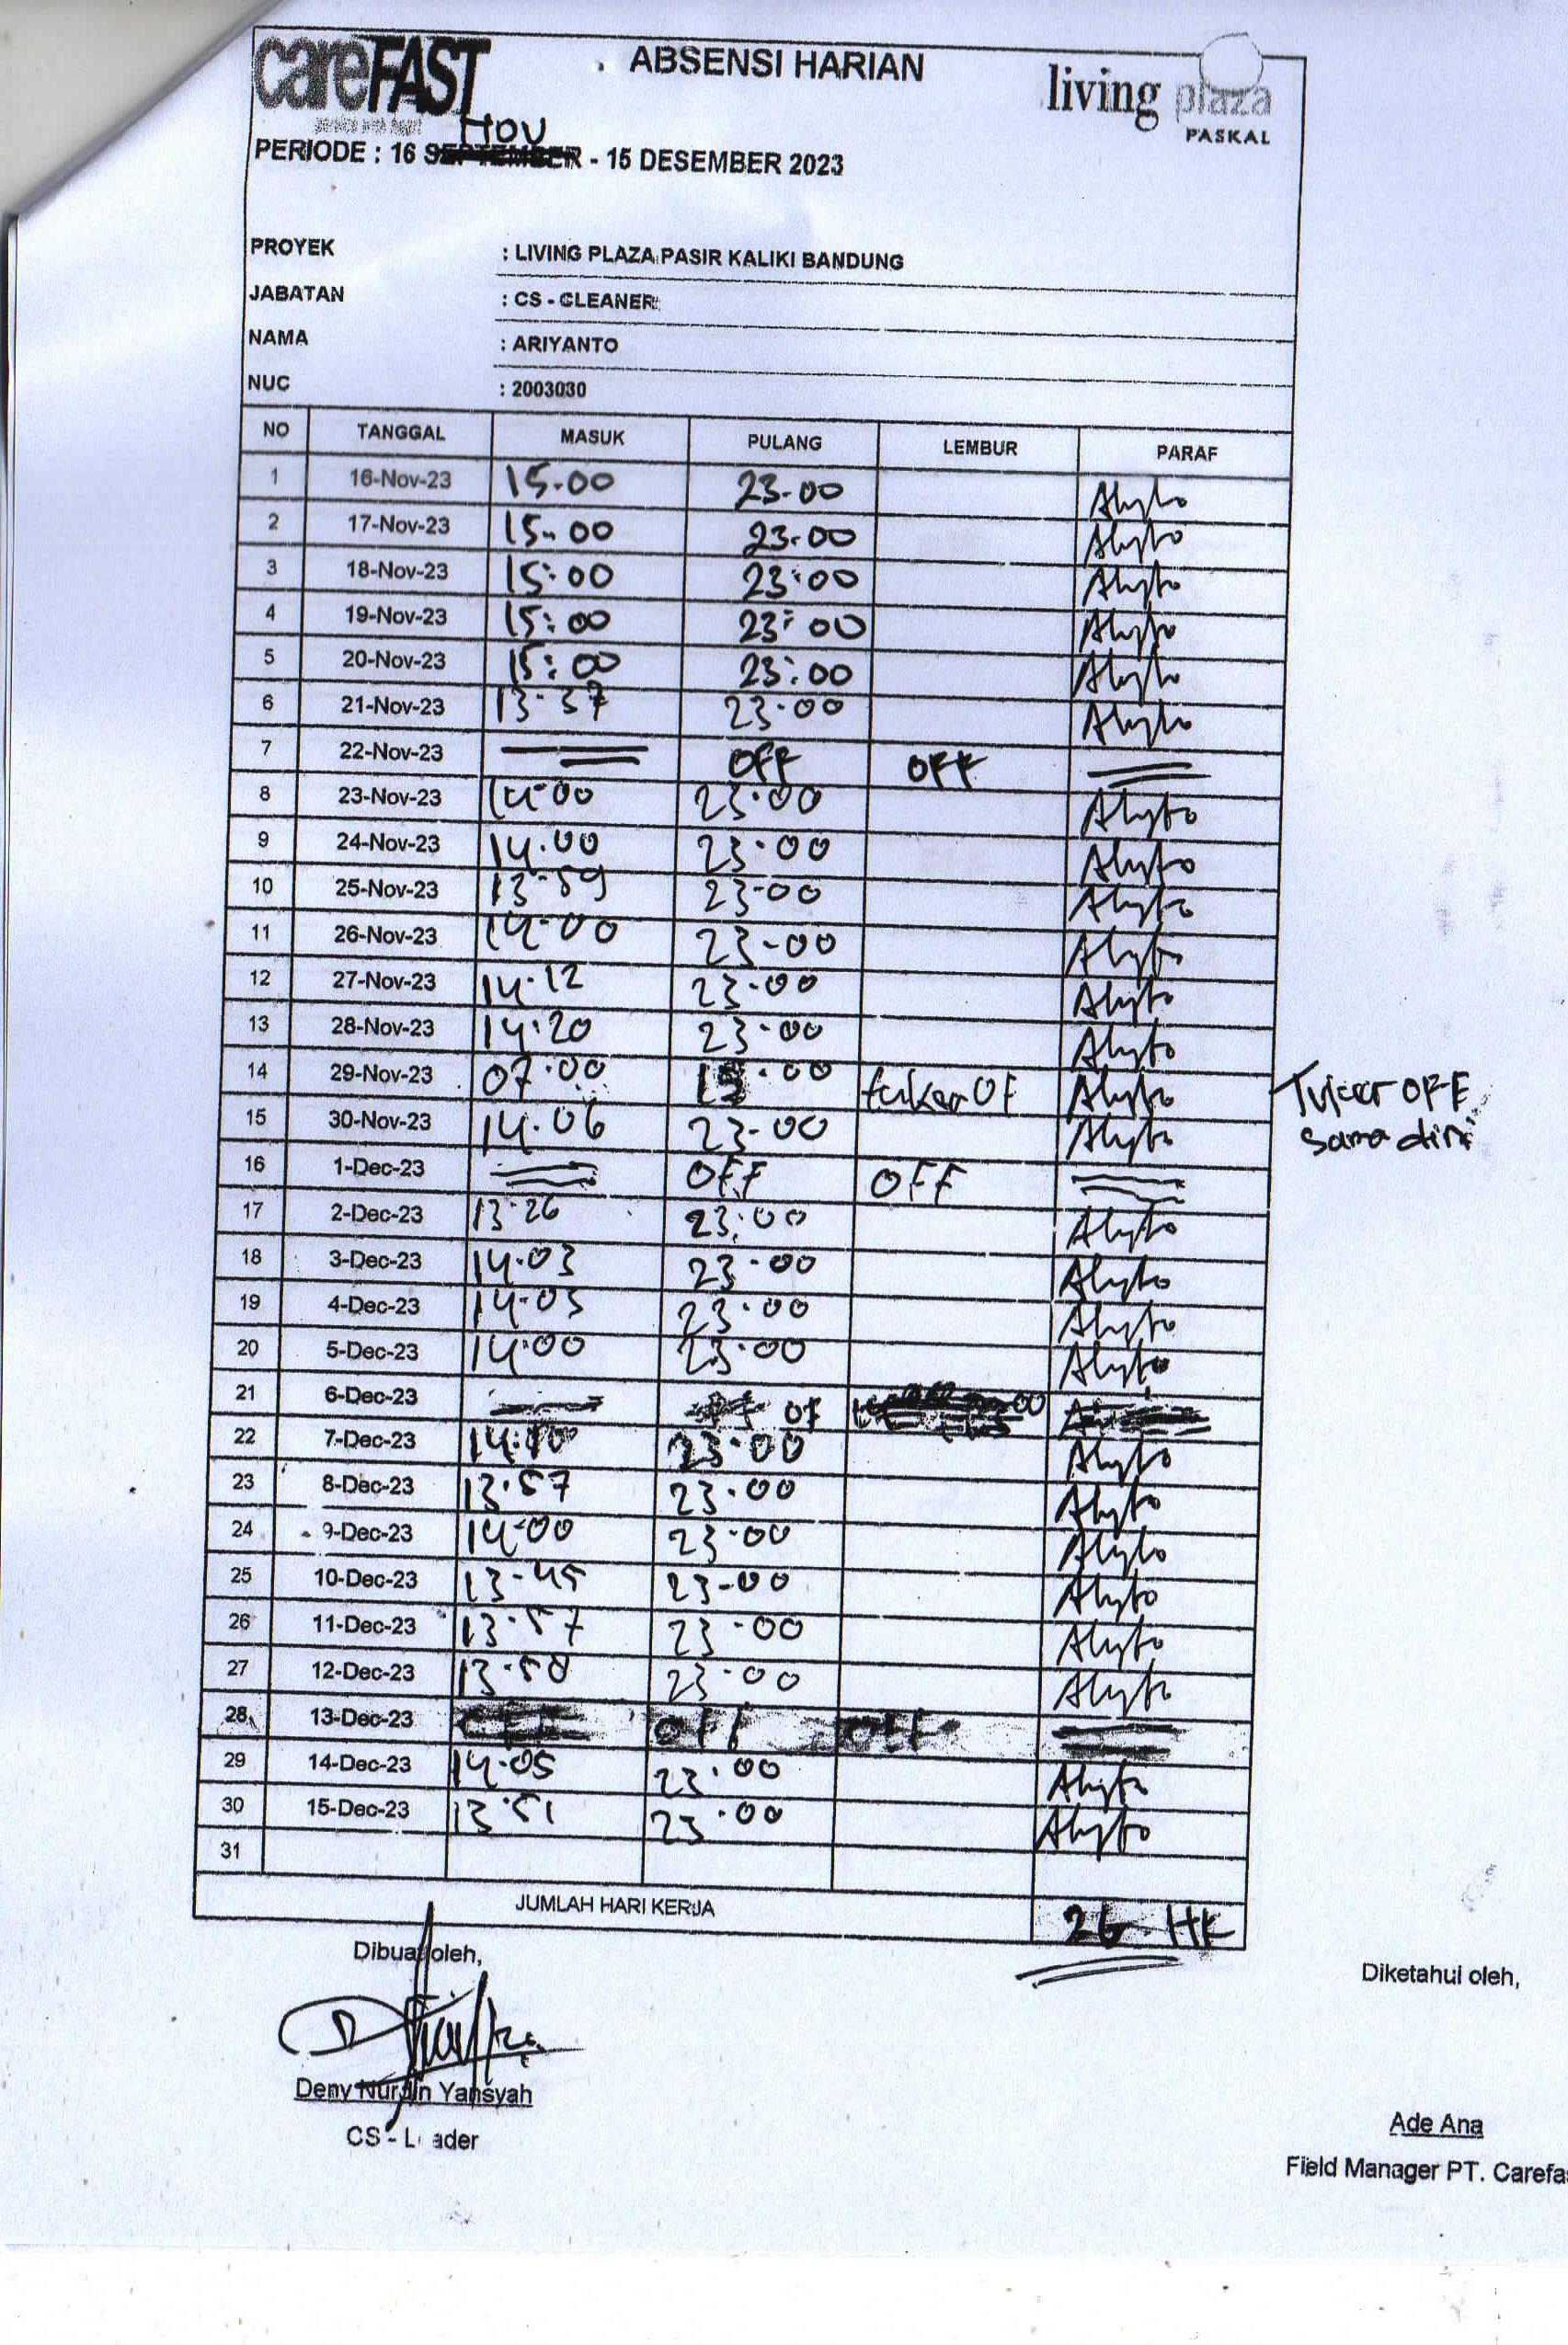 careFAST
ABSENSI HARIAN
living plaza
PASKAL
NOV
PERIODE : 16 SEPTEMBER - 15 DESEMBER 2023
PROYEK : LIVING PLAZA PASIR KALIKI BANDUNG
JABATAN : CS - CLEANER
NAMA : ARIYANTO
NUC : 2003030
NO TANGGAL MASUK PULANG LEMBUR PARAF
1 16-Nov-23 15.00 23.00
2 17-Nov-23 15.00 23.00
3 18-Nov-23 15:00 23:00
4 19-Nov-23 15:00 23:00
5 20-Nov-23 15:00 23:00
6 21-Nov-23 13.37 23.00
7 22-Nov-23 OFF OFF
8 23-Nov-23 14.00 23.00
9 24-Nov-23 14.00 23.00
10 25-Nov-23 13.59 23.00
11 26-Nov-23 14.00 23.00
12 27-Nov-23 14.12 23.00
13 28-Nov-23 14.20 23.00
14 29-Nov-23 07.00 15.00 tuker OF Tukar OFF
sama
15 30-Nov-23 14.06 23.00
16 1-Dec-23 OFF OFF
17 2-Dec-23 13.26 23.00
18 3-Dec-23 14.03 23.00
19 4-Dec-23 14.03 23.00
20 5-Dec-23 14.00 23.00
21 6-Dec-23 OF
22 7-Dec-23 23.00
23 8-Dec-23 13.57 23.00
24 9-Dec-23 14.00 23.00
25 10-Dec-23 13.45 23.00
26 11-Dec-23 13.57 23.00
27 12-Dec-23 13.58 23.00
28 13-Dec-23 OFF OFF
29 14-Dec-23 14.05 23.00
30 15-Dec-23 13.51 23.00
31
JUMLAH HARI KERJA 26 HK
Dibuat oleh, Diketahui oleh,
Deny Nurdin Yansyah Ade Ana
CS - Leader Field Manager PT. Carefa